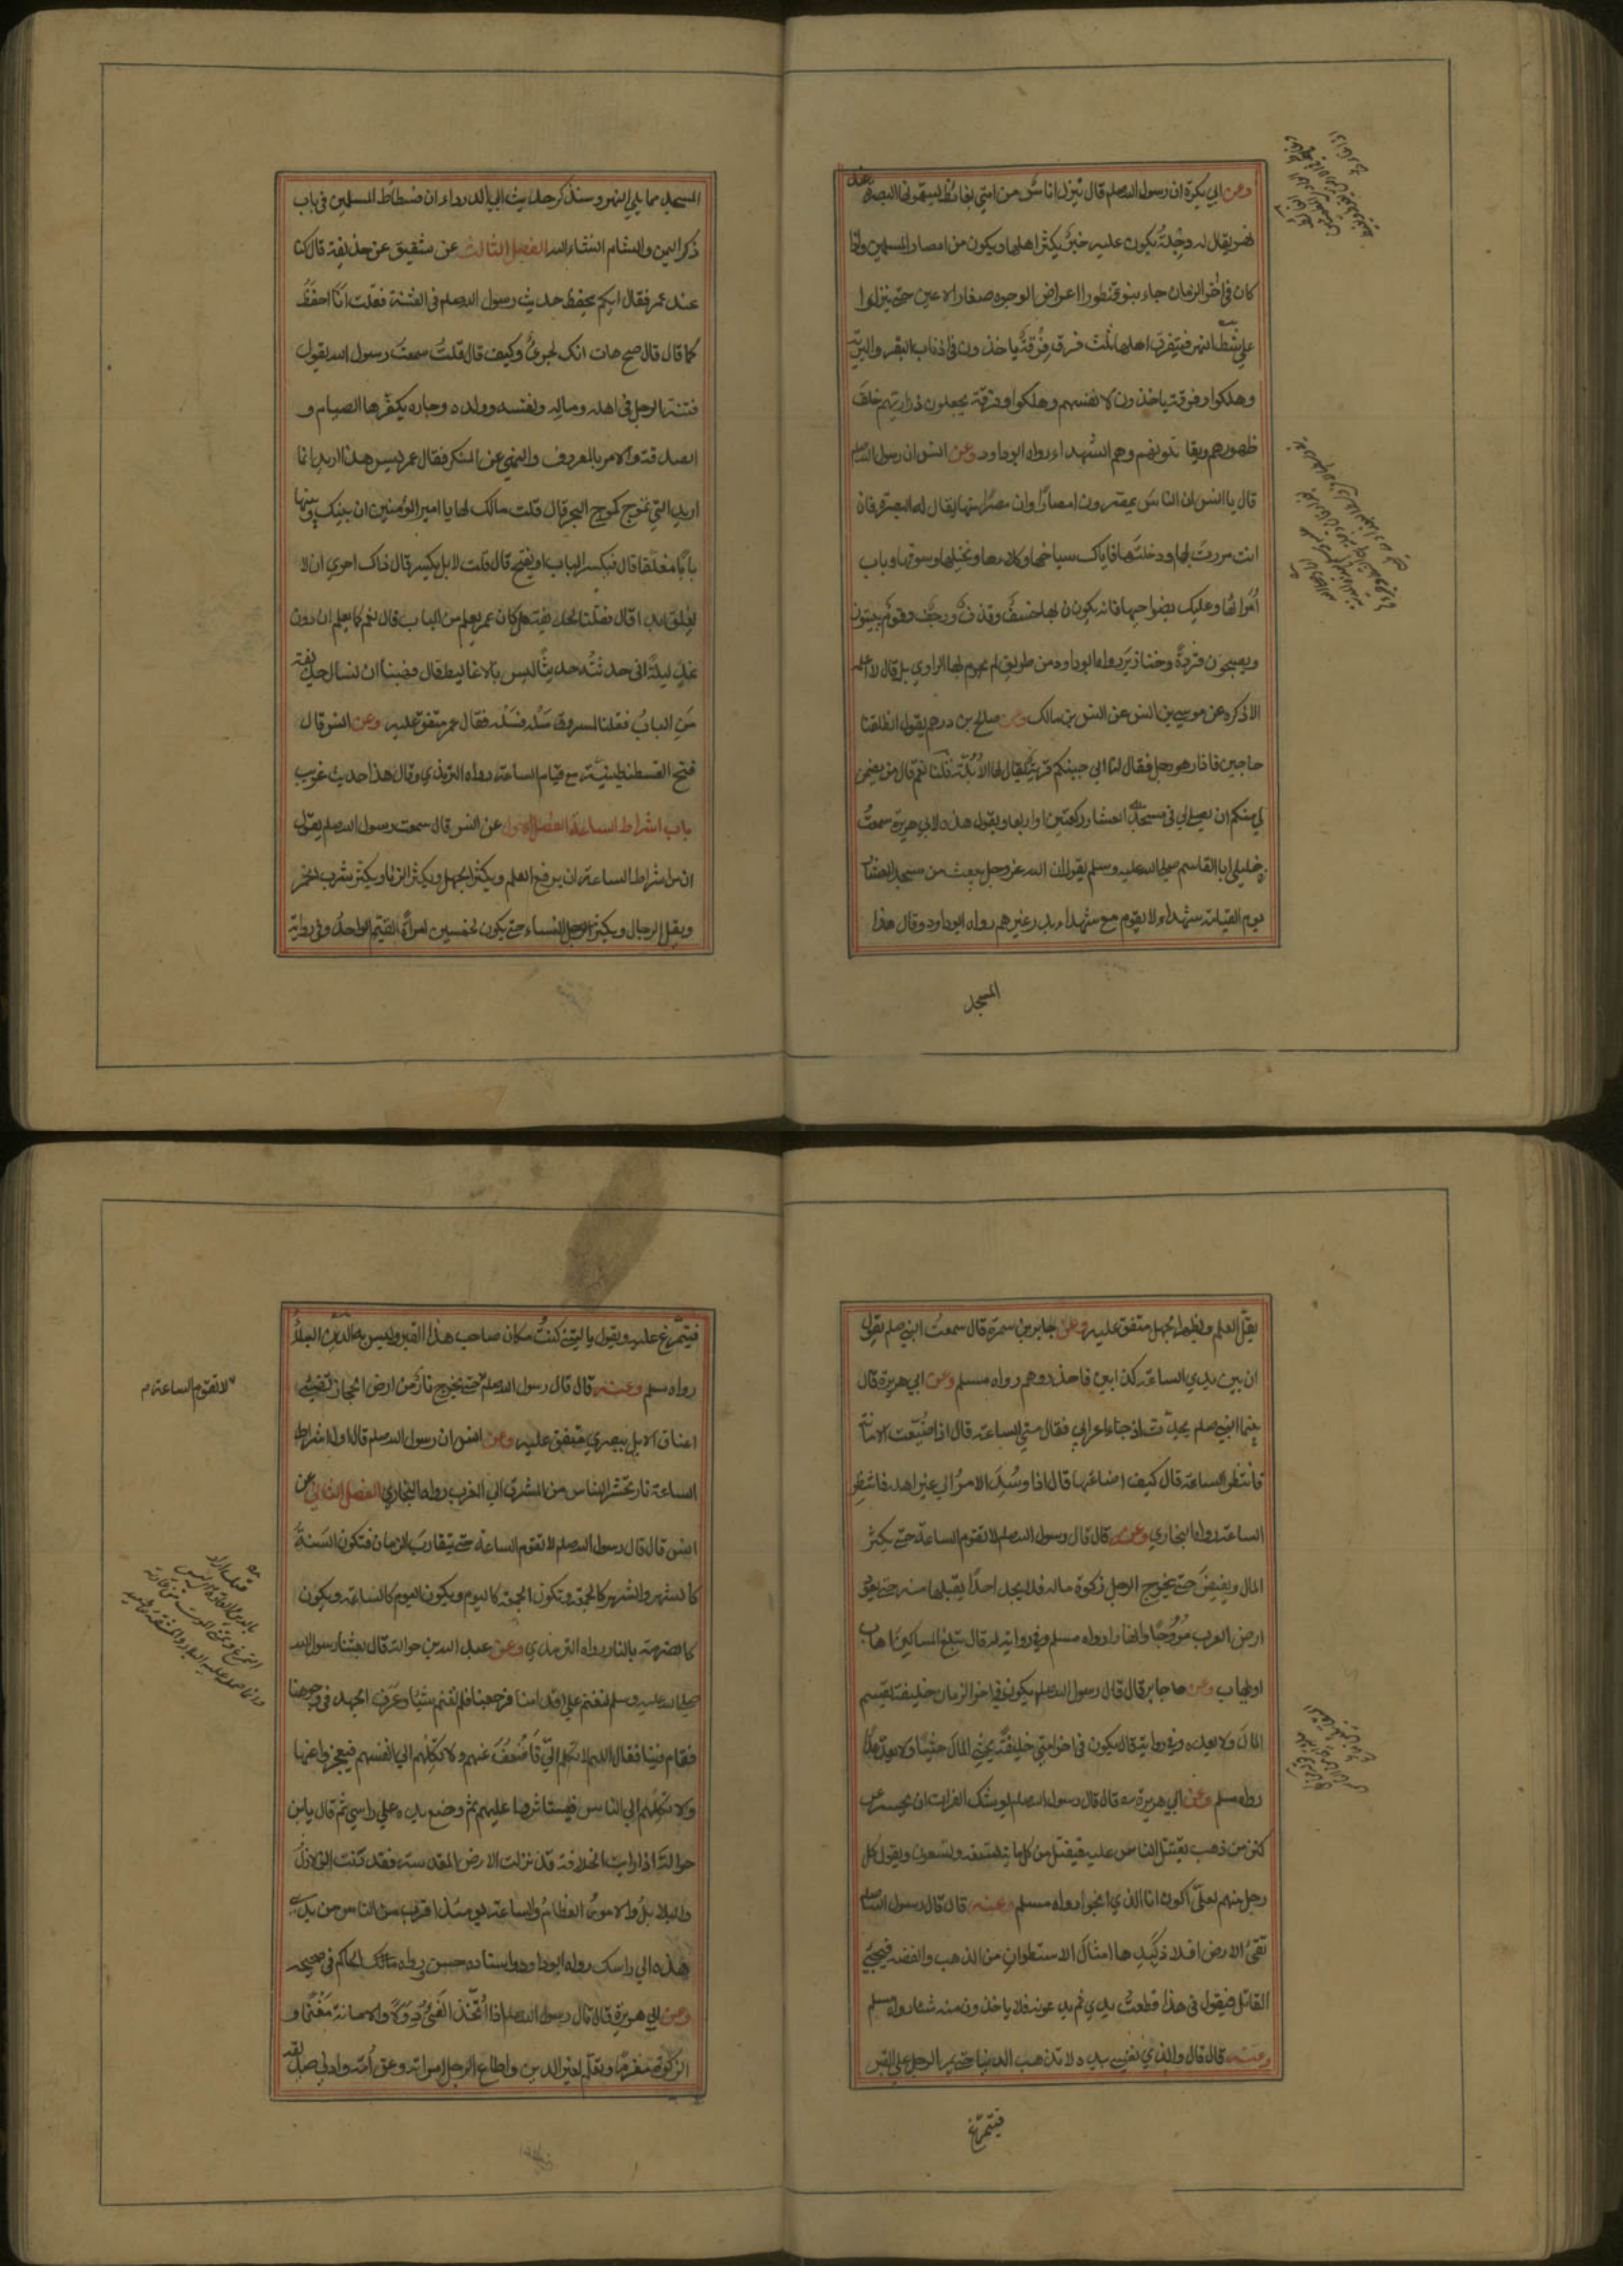 وعن ابي بكرة ان رسول الله صلعم قال ينزل اناس من امتي بغائط يسمونه البصرة عند
نهر يقال له دجلة يكون عليه جسر يكثر اهلها ويكون من امصار المسلمين واذا
كان في اخر الزمان جاء بنو قنطورا اعراض الوجوه صغار الاعين حتى ينزلوا
على شط النهر فيتفرق اهلها ثلث فرق فرقة ياخذون في اذناب البقر والبرية
وهلكوا وفرقة ياخذون لانفسهم وهلكوا وفرقة يجعلون ذراريهم خلف
ظهورهم ويقاتلونهم وهم الشهداء رواه ابوداود وعن انس ان رسول الله صلعم
قال يا انس ان الناس يمصرون امصارا وان مصرا منها يقال لها البصرة فان
انت مررت بها ودخلتها فاياك سباخها وكلاءها ونخيلها وسوقها وباب
امرائها وعليك بضواحيها فانه يكون بها خسف وقذف ورجف وقوم يبيتون
ويصبحون قردة وخنازير رواه ابوداود من طريق لم يجزم بها الراوي بل قال لا اعلمه
الا ذكره عن موسى بن انس عن انس بن مالك وعن صالح بن درهم يقول انطلقنا
حاجين فاذا رهو رجل فقال لنا الى جنبكم قرية يقال لها الابلة قلنا نعم قال من يضمن
لي منكم ان يصلي لي في مسجد العشار ركعتين او اربعا ويقول هذه لابي هريرة سمعت
خليلي ابا القاسم صلى الله عليه وسلم يقول ان الله عز وجل يبعث من مسجد العشار
يوم القيامة شهداء لا يقوم مع شهداء بدر غيرهم رواه ابوداود وقال هذا
المسجد
المسجد مما يلي النهر وسنذكر حديث ابي الدرداء ان فسطاط المسلمين في باب
ذكر اليمن والشام انشاء الله الفصل الثالث عن شقيق عن حذيفة قال كنا
عند عمر فقال ايكم يحفظ حديث رسول الله صلعم في الفتنة فقلت انا احفظ
كما قال قال صح هات انك لجري وكيف قال قلت سمعت رسول الله يقول
فتنة الرجل في اهله وماله ونفسه وولده وجاره يكفرها الصيام و
الصدقة والامر بالمعروف والنهي عن المنكر فقال عمر ليس هذا اريد انما
اريد التي تموج كموج البحر قال قلت مالك لها يا امير المؤمنين ان بينك وبينها
بابا مغلقا قال فيكسر الباب او يفتح قال قلت لا بل يكسر قال ذاك احرى ان لا
يغلق ابدا قال فقلنا لحذيفة هل كان عمر يعلم من الباب قال نعم كما يعلم ان دون
غد ليلة اني حدثته حديثا ليس بالاغاليط قال فهبنا ان نسال حذيفة
من الباب فقلنا لمسروق سله فسله فقال عمر متفق عليه وعن انس قال
فتح القسطنطينية مع قيام الساعة رواه الترمذي وقال هذا حديث غريب
باب اشراط الساعة الفصل الاول عن انس قال سمعت رسول الله صلعم يقول
ان من اشراط الساعة ان يرفع العلم ويكثر الجهل ويكثر الزنا ويكثر شرب الخمر
ويقل الرجال ويكثر النساء حتى يكون لخمسين امراة القيم الواحد وفي رواية
يقل العلم ويظهر الجهل متفق عليه وعن جابر بن سمرة قال سمعت النبي صلعم يقول
ان بين يدي الساعة كذابين فاحذروهم رواه مسلم وعن ابي هريرة قال
بينما النبي صلعم يحدث اذ جاء اعرابي فقال متى الساعة قال اذا ضيعت الامانة
فانتظر الساعة قال كيف اضاعتها قال اذا وسد الامر الى غير اهله فانتظر
الساعة رواه البخاري وعنه قال قال رسول الله صلعم لا تقوم الساعة حتى يكثر
المال ويفيض حتى يخرج الرجل زكوة ماله فلا يجد احدا يقبلها منه حتى تعود
ارض العرب مروجا وانهارا رواه مسلم وفي رواية له قال تبلغ المساكن اهاب
او يهاب وعن جابر قال قال رسول الله صلعم يكون في اخر الزمان خليفة يقسم
المال ولا يعده وفي رواية قال يكون في اخر امتي خليفة يحثي المال حثيا ولا يعده عدا
رواه مسلم وعن ابي هريرة قال قال رسول الله صلعم يوشك الفرات ان يحسر عن
كنز من ذهب يقتتل الناس عليه فيقتل من كل مائة تسعة وتسعون ويقول كل
رجل منهم لعلي اكون انا الذي انجوا رواه مسلم وعنه قال قال رسول الله صلعم
تقئ الارض افلاذ كبدها امثال الاسطوان من الذهب والفضة فيجئ
القاتل فيقول في هذا قطعت يدي ثم يدعونه فلا ياخذون منه شئا رواه مسلم
وعنه قال قال والذي نفسي بيده لا تذهب الدنيا حتى يمر الرجل على القبر
فيتمرغ
فيتمرغ عليه ويقول يا ليتني كنت مكان صاحب هذا القبر وليس به الدين الا البلاء
رواه مسلم وعنه قال قال رسول الله صلعم حتى يخرج نار من ارض الحجاز تضئ
لا تقوم الساعة م
اعناق الابل ببصرى متفق عليه وعن انس ان رسول الله صلعم قال اول اشراط
الساعة نار تحشر الناس من المشرق الى المغرب رواه البخاري الفصل الثاني عن
انس قال قال رسول الله صلعم لا تقوم الساعة حتى يتقارب الزمان فتكون السنة
كالشهر والشهر كالجمعة وتكون الجمعة كاليوم ويكون اليوم كالساعة ويكون
كالضرمة بالنار رواه الترمذي وعن عبد الله بن حوالة قال بعثنا رسول الله
صلى الله عليه وسلم لنغنم على اقدامنا فرجعنا فلم نغنم شيئا وعرف الجهد في وجوهنا
فقام فينا فقال اللهم لا تكلهم الي فاضعف عنهم ولا تكلهم الى انفسهم فيعجزوا عنها
ولا تكلهم الى الناس فيستاثروا عليهم ثم وضع يده على راسي ثم قال يا ابن
حوالة اذا رايت الخلافة قد نزلت الارض المقدسة فقد دنت الزلازل
والبلابل والامور العظام والساعة يومئذ اقرب من الناس من يدي
هذه الى راسك رواه ابوداود واسناده حسن رواه الحاكم في صحيحه
وعن ابي هريرة قال قال رسول الله صلعم اذا اتخذ الفئ دولا والامانة مغنما و
الزكوة مغرما وتعلم لغير الدين واطاع الرجل امراته وعق امه وادنى صديقه